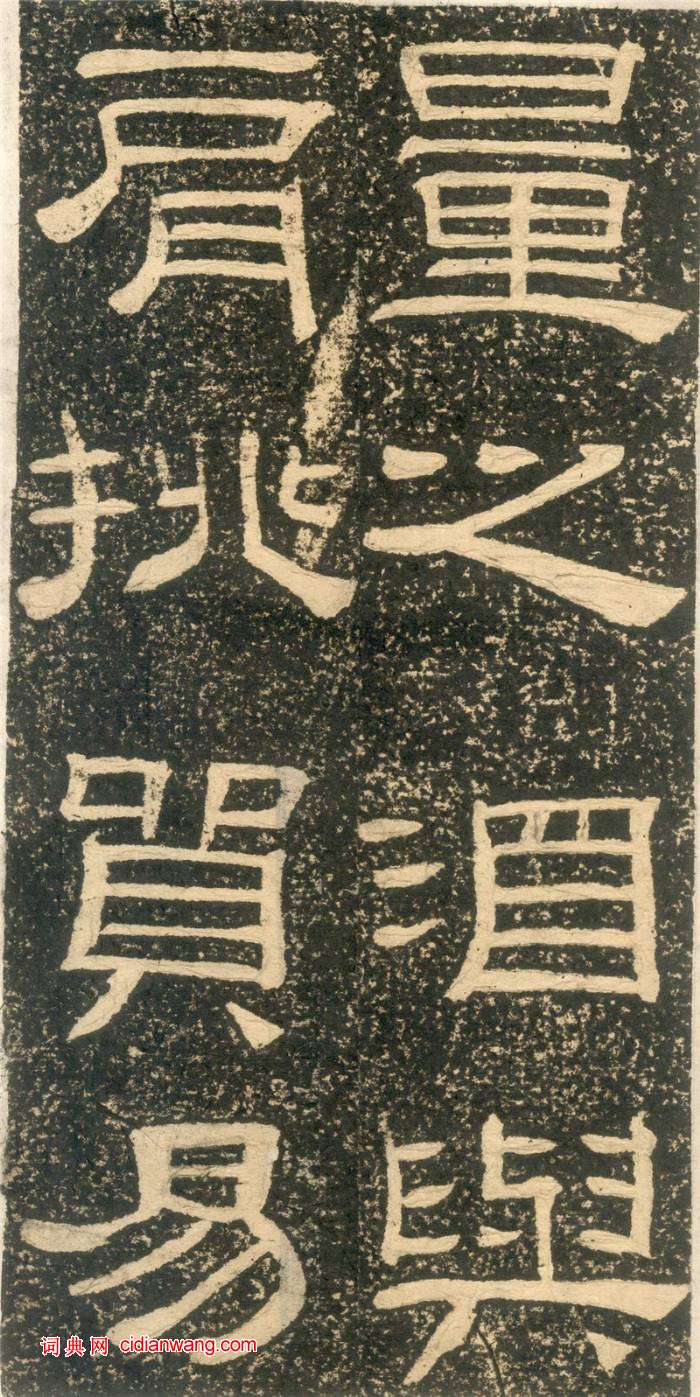 量之酒與
肩挑貿易
词典网 cidianwang.com